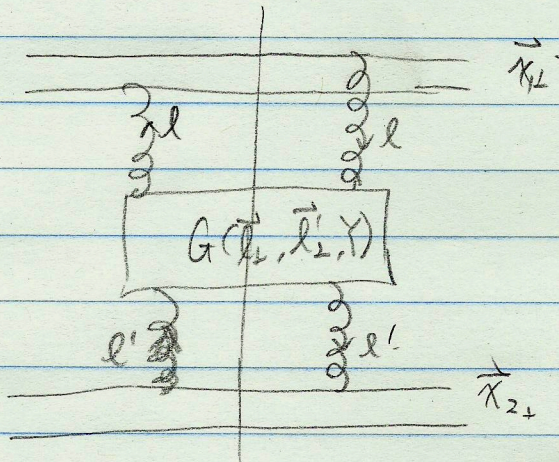 x⃗₁⊥
l
l
G(l⃗⊥, l⃗'⊥, Y)
l'
l'
x⃗₂⊥